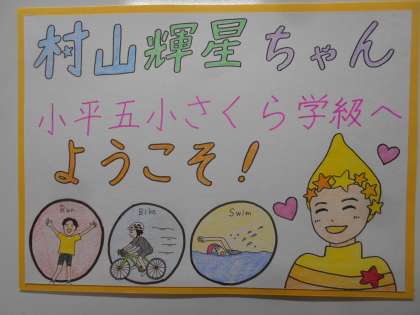 村山輝星ちゃん
小平五小さくら学級へ
ようこそ!
Run
Bike
Swim